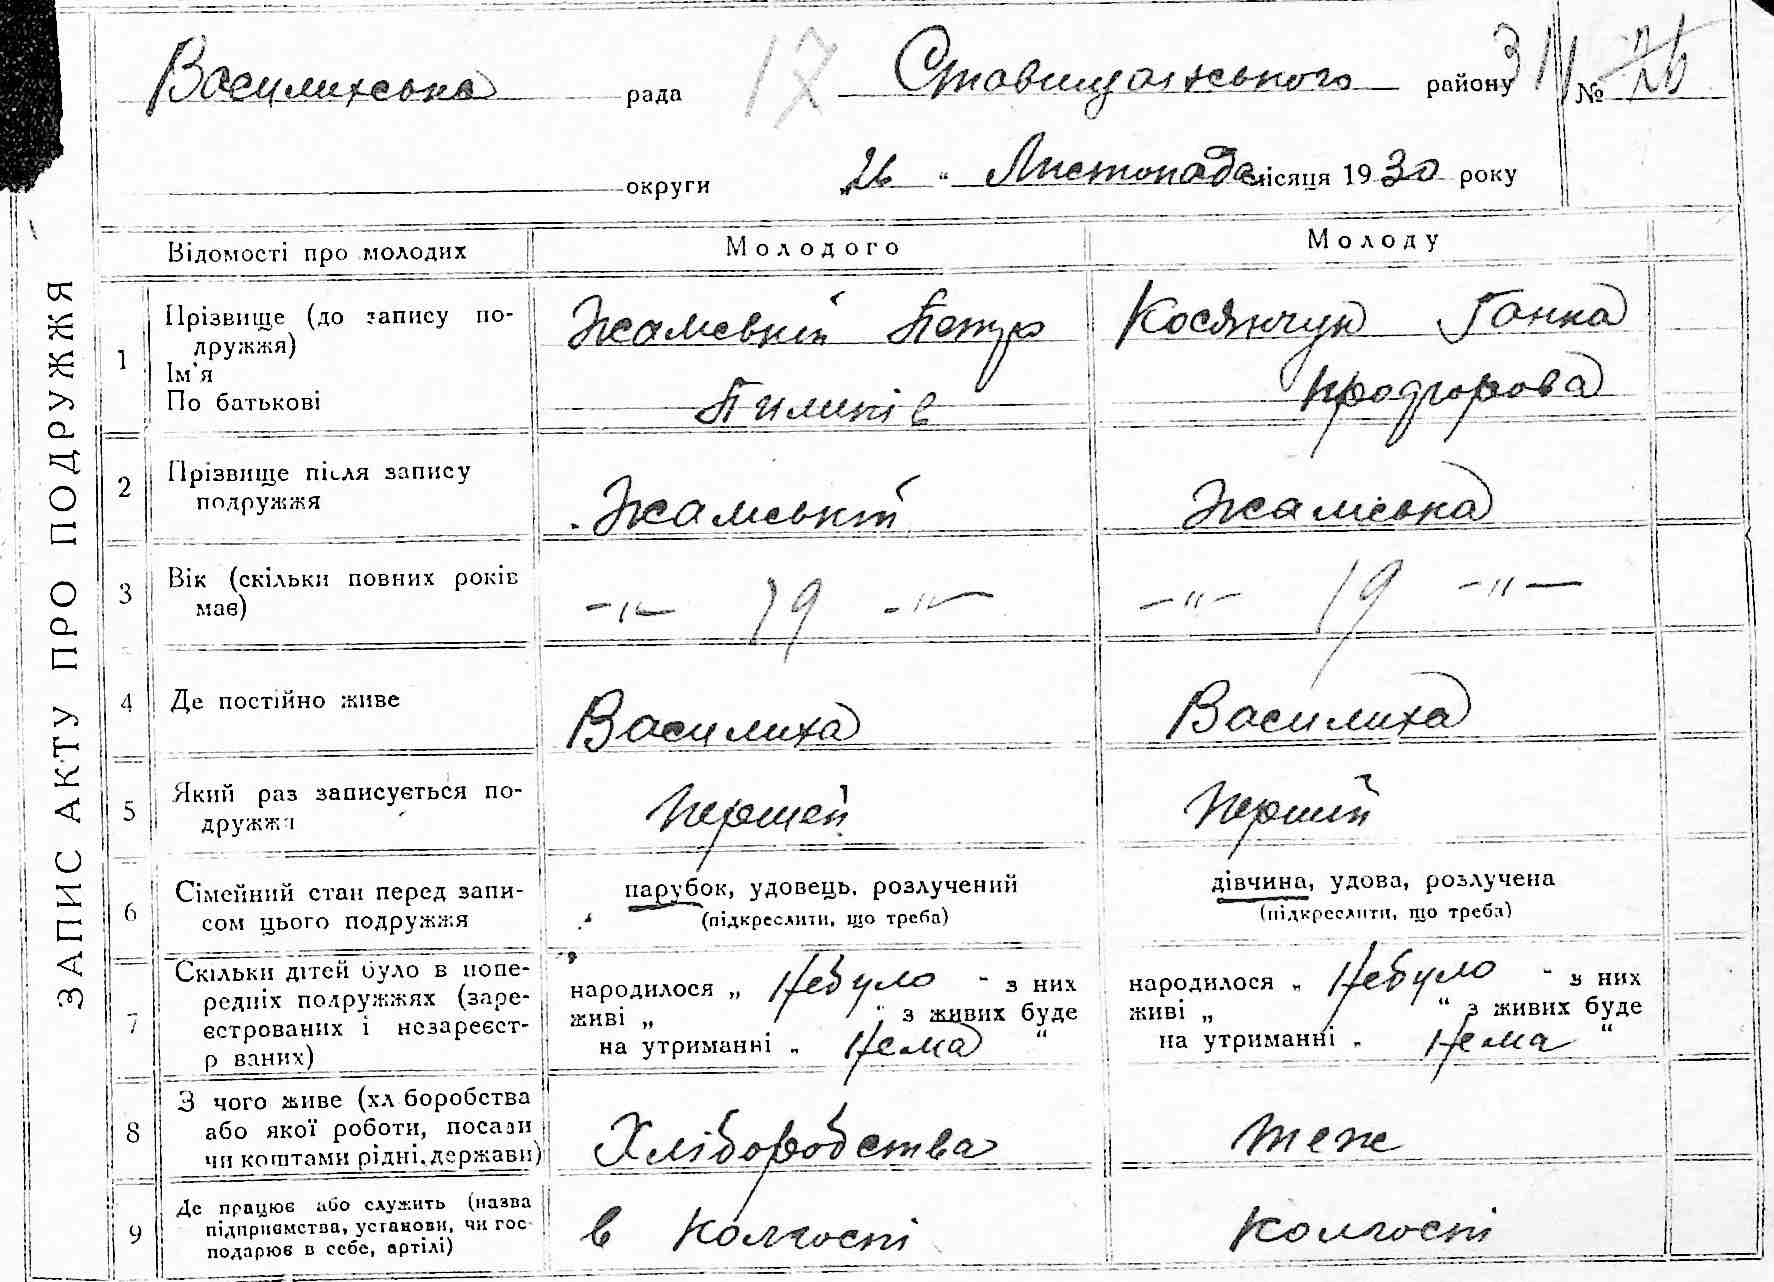 Василихська рада 17 Ставищанського району 31 № 26
округи „26 “ Листопада місяця 1930 року
ЗАПИС АКТУ ПРО ПОДРУЖЖЯ
Відомості про молодих Молодого Молоду
1 Прізвище (до запису по-
дружжя)
Ім'я
По батькові
Жамський Петро
Пилипів
Косянчук Ганна
Прохорова
2 Прізвище після запису
подружжя
Жамській
Жамська
3 Вік (скільки повних років
має)
–„– 19 –„–
–„– 19 –„–
4 Де постійно живе Василиха Василиха
5 Який раз записується по-
дружжя
Першей
Першій
6 Сімейний стан перед запи-
сом цього подружжя
парубок, удовець, розлучений
(підкреслити, що треба)
дівчина, удова, розлучена
(підкреслити, що треба)
7 Скільки дітей було в попе-
редніх подружжях (заре-
єстрованих і незареєст-
р ваних)
народилося „ Небуло “ з них
живі „ “ з живих буде
на утриманні „ Нема “
народилося „ Небуло “ з них
живі „ “ з живих буде
на утриманні „ Нема “
8 З чого живе (хл боробства
або якої роботи, посади
чи коштами рідні, держави)
Хліборобства
теж
9 Де працює або служить (назва
підприємства, установи, чи гос-
подарює в себе, артілі)
в колгоспі
колгоспі